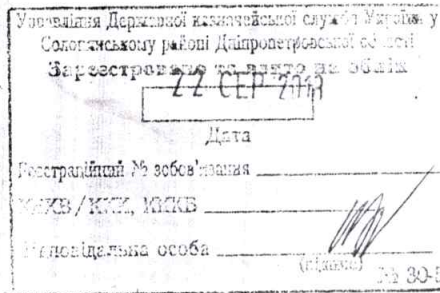 Управління Державної казначейської служби України у
Солонянському районі Дніпропетровської області
Зареєстровано та взято на облік
22 СЕР 2013
Дата
Реєстраційний № зобов'язання
КЕКВ / ККК, ККБ
Відповідальна особа
(підпис)
№ 30-